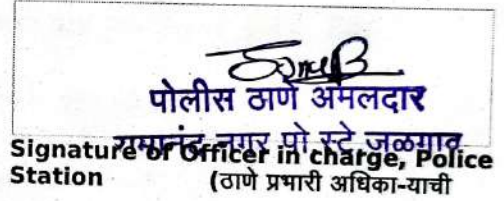 पोलीस ठाणे अंमलदार
रामानंद नगर पो स्टे जळगाव
Signature of Officer in charge, Police
Station (ठाणे प्रभारी अधिका-याची